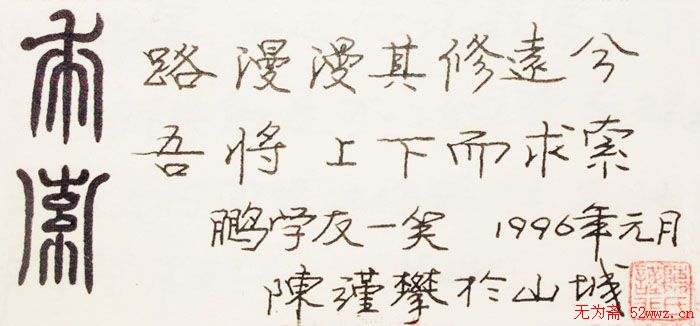 求索
路漫漫其修远兮
吾将上下而求索
鹏学友一笑 1996年元月
陳瑾攀於山城
无为斋 52wwz.cn